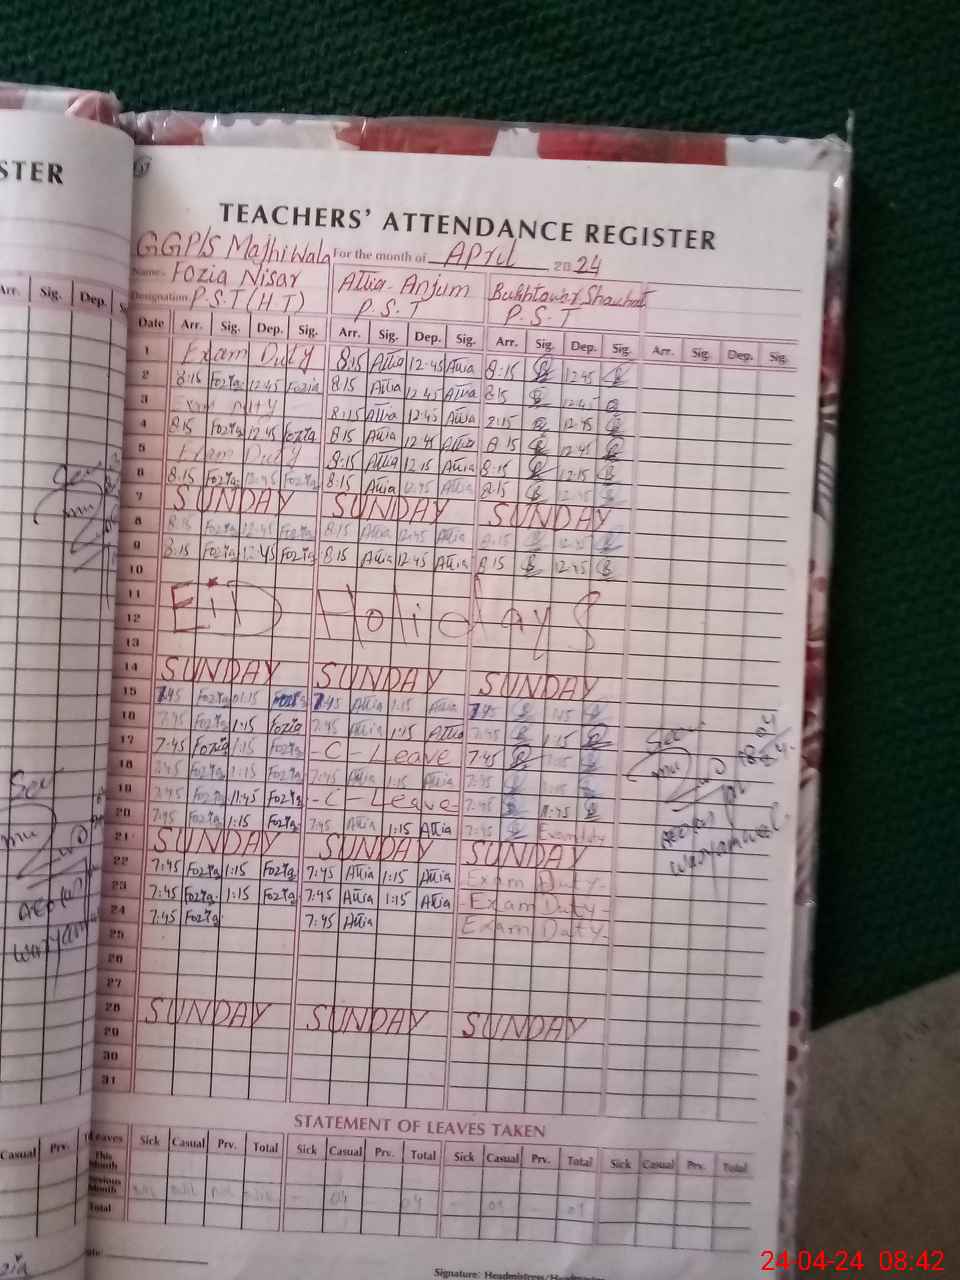 STER
TEACHERS' ATTENDANCE REGISTER
GGP/S Majhi Wala For the month of April 2024
Name: Fozia Nisar Attia Anjum Bukhtawer Shaukat
Designation P.S.T (H T) P.S.T P.S.T
Arr. Sig. Dep. S
Date Arr. Sig. Dep. Sig. Arr. Sig. Dep. Sig. Arr. Sig. Dep. Sig. Arr. Sig. Dep. Sig.
1 Exam Duty 8:15 Attia 12:45 Attia 8:15 12:45
2 8:15 Fozia 12:45 Fozia 8:15 Attia 12:45 Attia 8:15 12:45
3 Exam Duty 8:15 Attia 12:45 Attia 8:15 12:45
4 8:15 Fozia 12:45 Fozia 8:15 Attia 12:45 Attia 8:15 12:45
5 Exam Duty 8:15 Attia 12:15 Attia 8:15 12:15
6 8:15 Fozia 12:45 Fozia 8:15 Attia 12:45 Attia 8:15 12:45
7 SUNDAY SUNDAY SUNDAY
8 8:15 Fozia 12:45 Fozia 8:15 Attia 12:45 Attia 8:15 12:45
9 8:15 Fozia 12:45 Fozia 8:15 Attia 12:45 Attia 8:15 12:45
10
11
12 EiD Holidays
13
14 SUNDAY SUNDAY SUNDAY
15 7:45 Fozia 01:15 Fozia 7:45 Attia 1:15 Attia 7:45 1:15
16 7:45 Fozia 1:15 Fozia 7:45 Attia 1:15 Attia 7:45 1:15
17 7:45 Fozia 1:15 Fozia - C - Leave 7:45 1:15
18 7:45 Fozia 1:15 Fozia 7:45 Attia 1:15 Attia 7:45 1:15
19 7:45 Fozia 11:45 Fozia - C - Leave - 7:45 11:45
20 7:45 Fozia 1:15 Fozia 7:45 Attia 1:15 Attia 7:45 Exam duty
21 SUNDAY SUNDAY SUNDAY
22 7:45 Fozia 1:15 Fozia 7:45 Attia 1:15 Attia Exam Duty-
23 7:45 Fozia 1:15 Fozia 7:45 Attia 1:15 Attia - Exam Duty -
24 7:45 Fozia 7:45 Attia Exam Duty-
25
26
27
28 SUNDAY SUNDAY SUNDAY
29
30
31
STATEMENT OF LEAVES TAKEN
Casual Prv.
Leaves Sick Casual Prv. Total Sick Casual Prv. Total Sick Casual Prv. Total Sick Casual Prv. Total
This Month
Previous Month 04 04
Total
Signature: Headmistress/
24-04-24 08:42